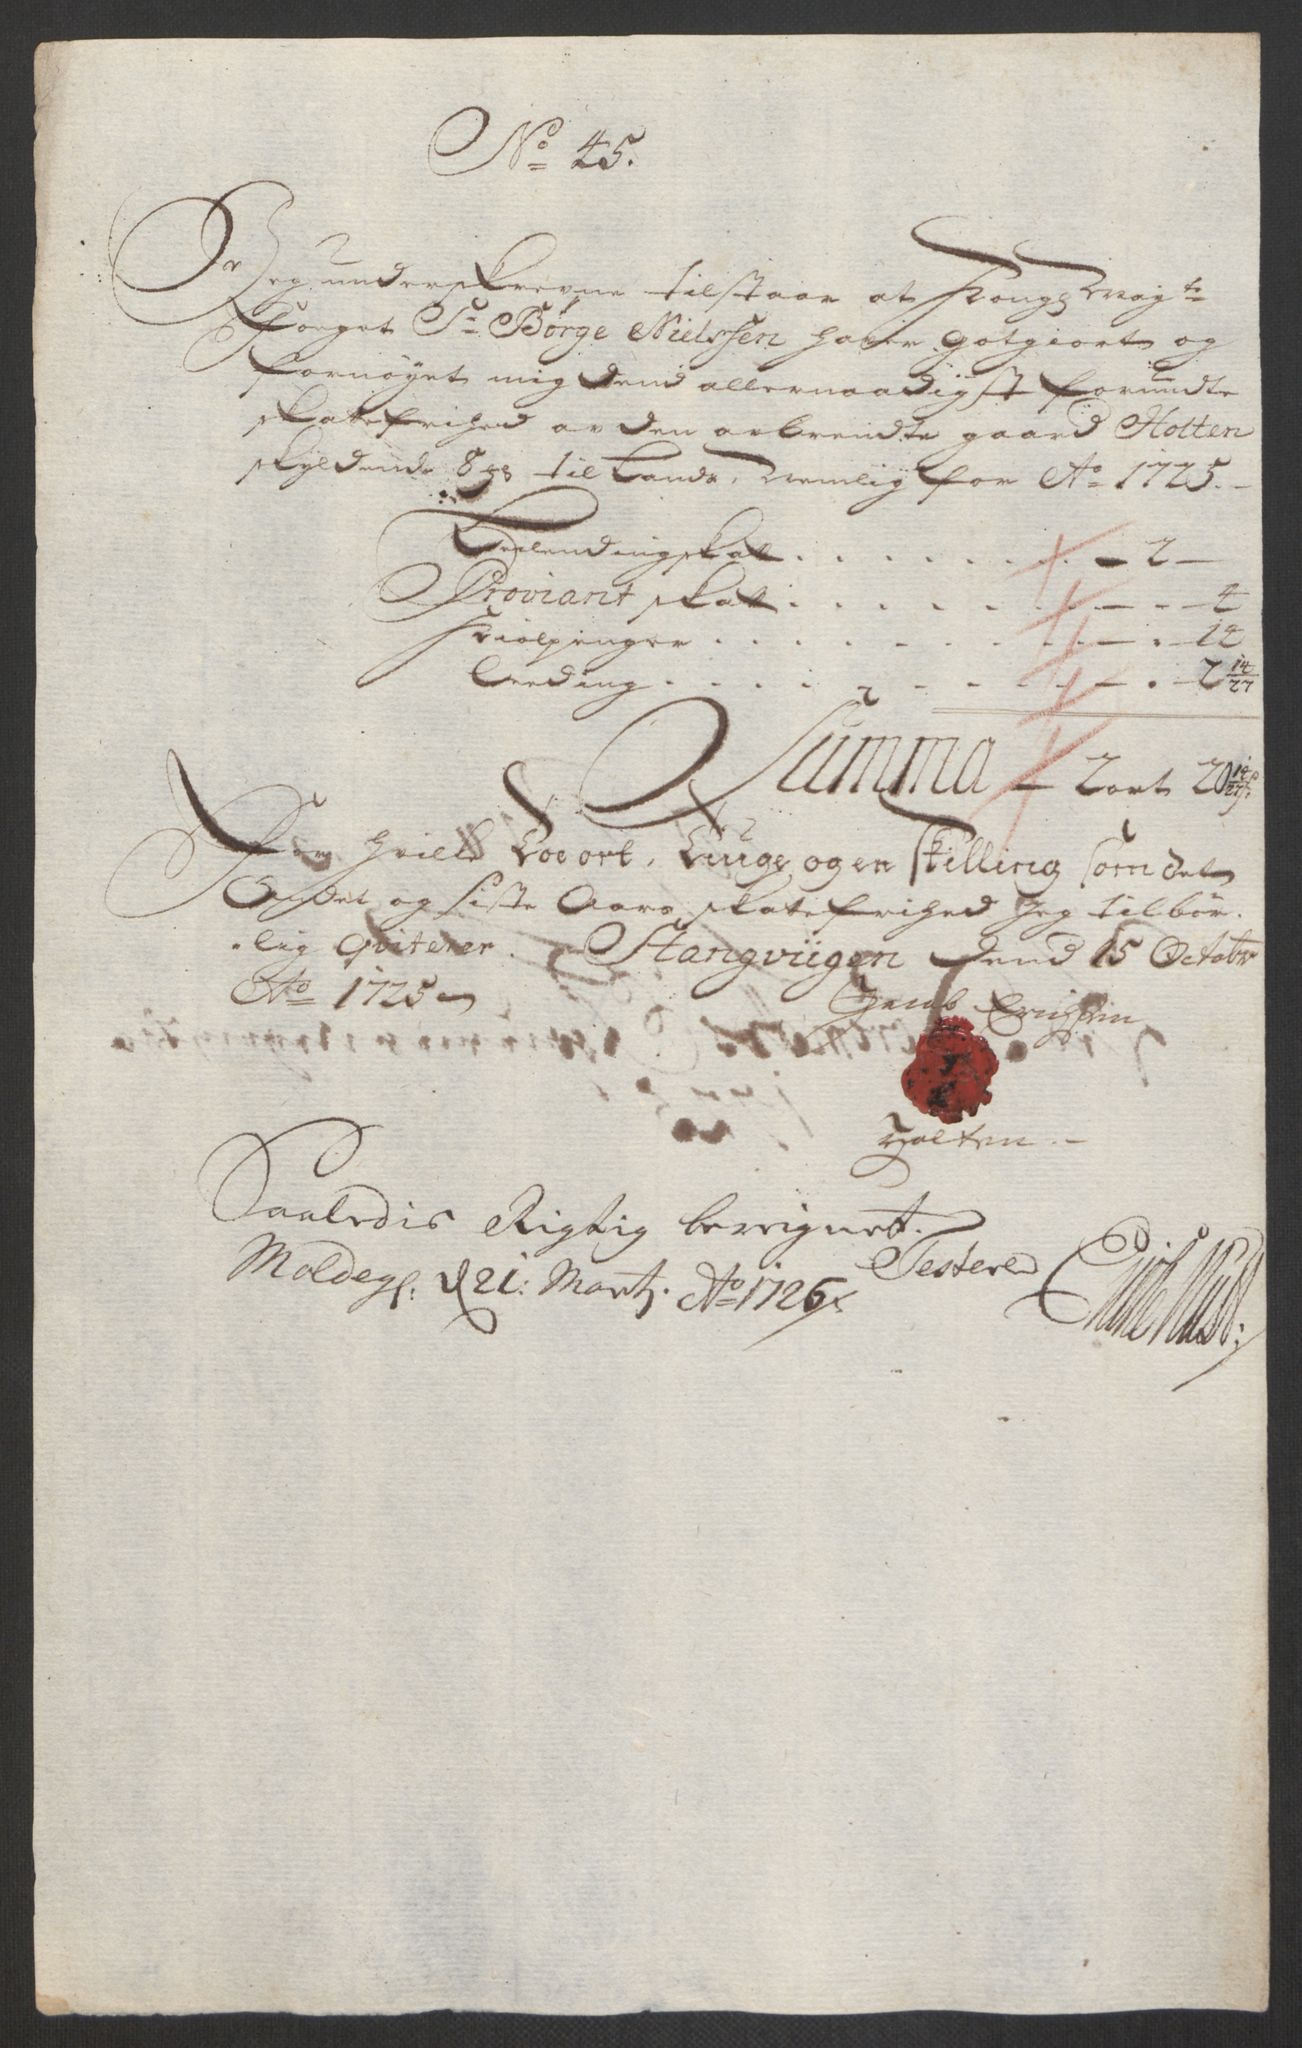 No 45.
Jeg underskrevne tilstaar at Kongs Mayts
Foeget Sr Børge Nielssen haver gotgiort og
fornøyet mig dend allernaadigst forundte
skatefrihed av den avbrendte gaard Holten
skyldende 8 til Lands, Nemlig for Ao 1725.
Leilendingskat . . . . . . . 2 —
Proviant skat . . . . . . . 4
Kiolpenger . . . . . . . 12
Leeding . . . . . . . 2 14/27
Summa — 2 ort 20 14/27 s.
For hvilke toe ort, tiuge og en skilling som det
Andet og siste Aars skatefrihed Jeg tilbør-
lig qviterer. Stangviigen dend 15 Octobr
Ao 1725
Jacob Erichsen
Holten
Saaledis Rigtig bereignet.
Moldeg: d 21: Marty. Ao 1726
Testerer